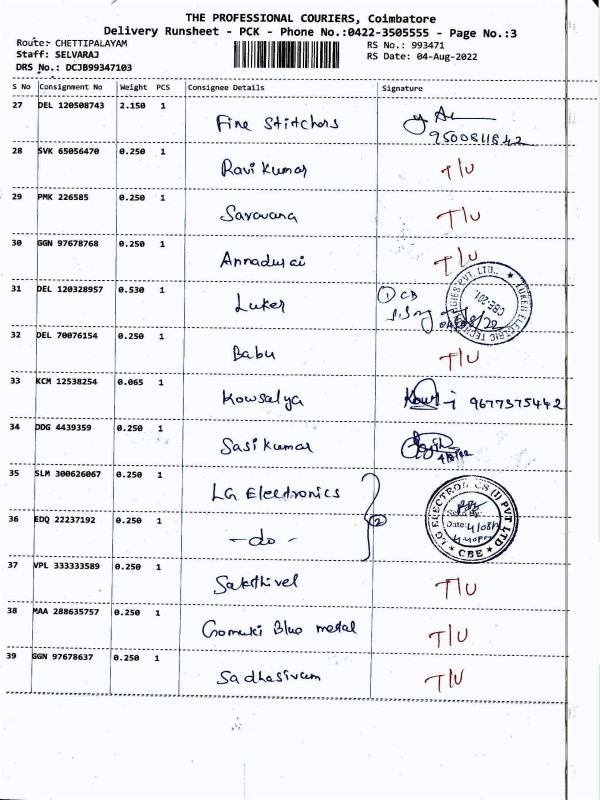 THE PROFESSIONAL COURIERS, Coimbatore
Delivery Runsheet - PCK - Phone No.:0422-3505555 - Page No.:3
Route: CHETTIPALAYAM RS No.: 993471
Staff: SELVARAJ RS Date: 04-Aug-2022
DRS No.: DCJB99347103
S No Consignment No Weight PCS Consignee Details Signature
27 DEL 120508743 2.150 1 Fine Stitchers
28 SVK 65056470 0.250 1 Ravi Kumar T/U
29 PMK 226585 0.250 1 Saravana T/U
30 GGN 97678768 0.250 1 Annadurai T/U
31 DEL 120328957 0.530 1 Luker 1 CB
32 DEL 70076154 0.250 1 Babu T/U
33 KCM 12538254 0.065 1 Kowsalya 9677375442
34 DDG 4439359 0.250 1 Sasikumar
35 SLM 300626067 0.250 1 LG Electronics
LG ELECTRONICS (I) PVT LTD
36 EDQ 22237192 0.250 1 -do- 2
Date: 4/08/
4.40pm
* CBE *
37 VPL 333333589 0.250 1 Sakthivel T/U
38 MAA 288635757 0.250 1 Gomuki Blue metal T/U
39 GGN 97678637 0.250 1 Sadhasivam T/U